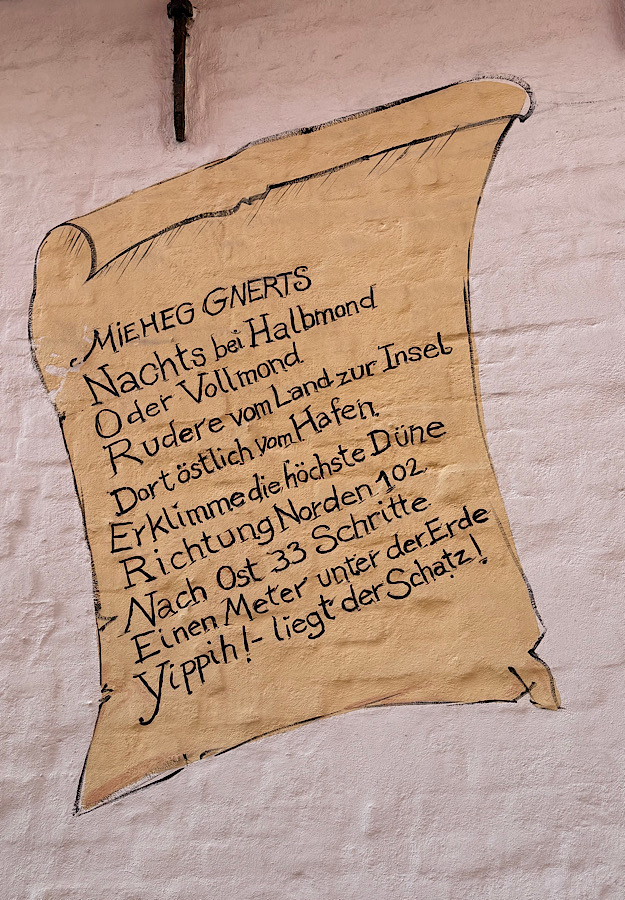 MiEHEG GNERTS
Nachts bei Halbmond
Oder Vollmond
Rudere vom Land zur Insel
Dort östlich vom Hafen.
Erklimme die höchste Düne
Richtung Norden 102
Nach Ost 33 Schritte.
Einen Meter unter der Erde
Yippih!- liegt der Schatz!